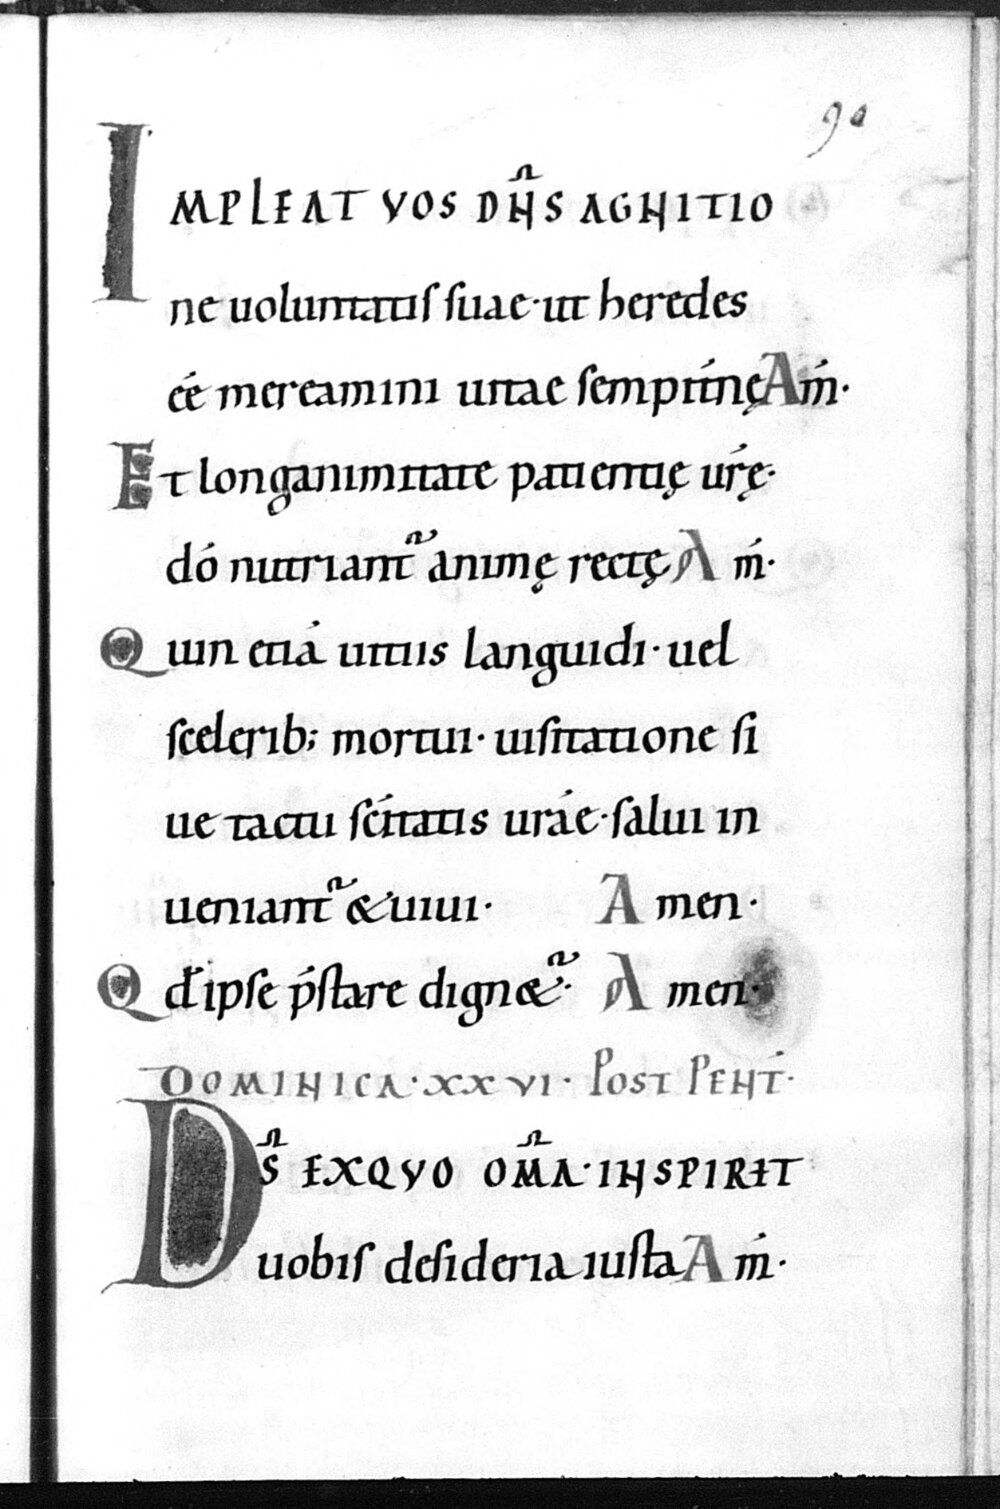 90
IMPLEAT VOS DN̄S AGNITIO
ne uoluntatis suae· ut heredes
éé mereamini uitae sempit́nę Am̄·
Et longanimitate patientię ur̄ę·
dō nutriant᷑ animę rectę Am̄·
Quin etiā uitiis languidi· uel
scelerib; mortui· uisitatione si
ue tactu sc̄itatis urāe· salui in
ueniant᷑ & uiui· Amen·
Qd̄ ipse p̄stare dign&᷑· Amen·
DOMINICA· XXVI· POST PENT̄·
DS̄ EXQVO OM̄A· INSPIRET
uobis desideria iusta Am̄·